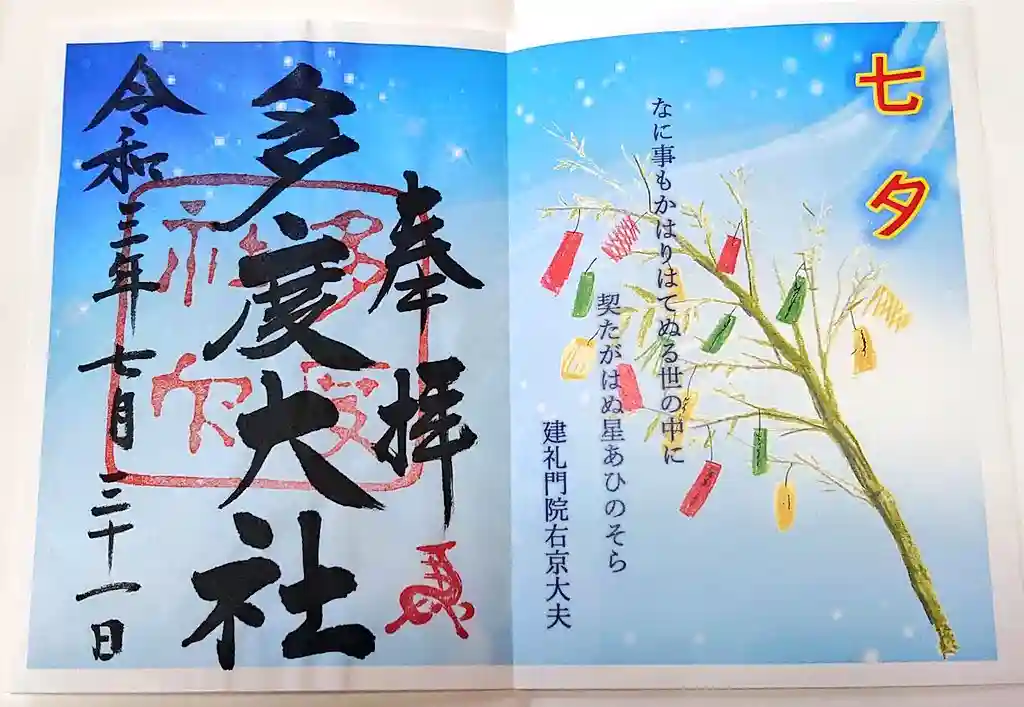 七夕
なに事もかはりはてぬる世の中に
契たがはぬ星あひのそら
建礼門院右京大夫
奉拝
多度大社
令和三年七月二十一日